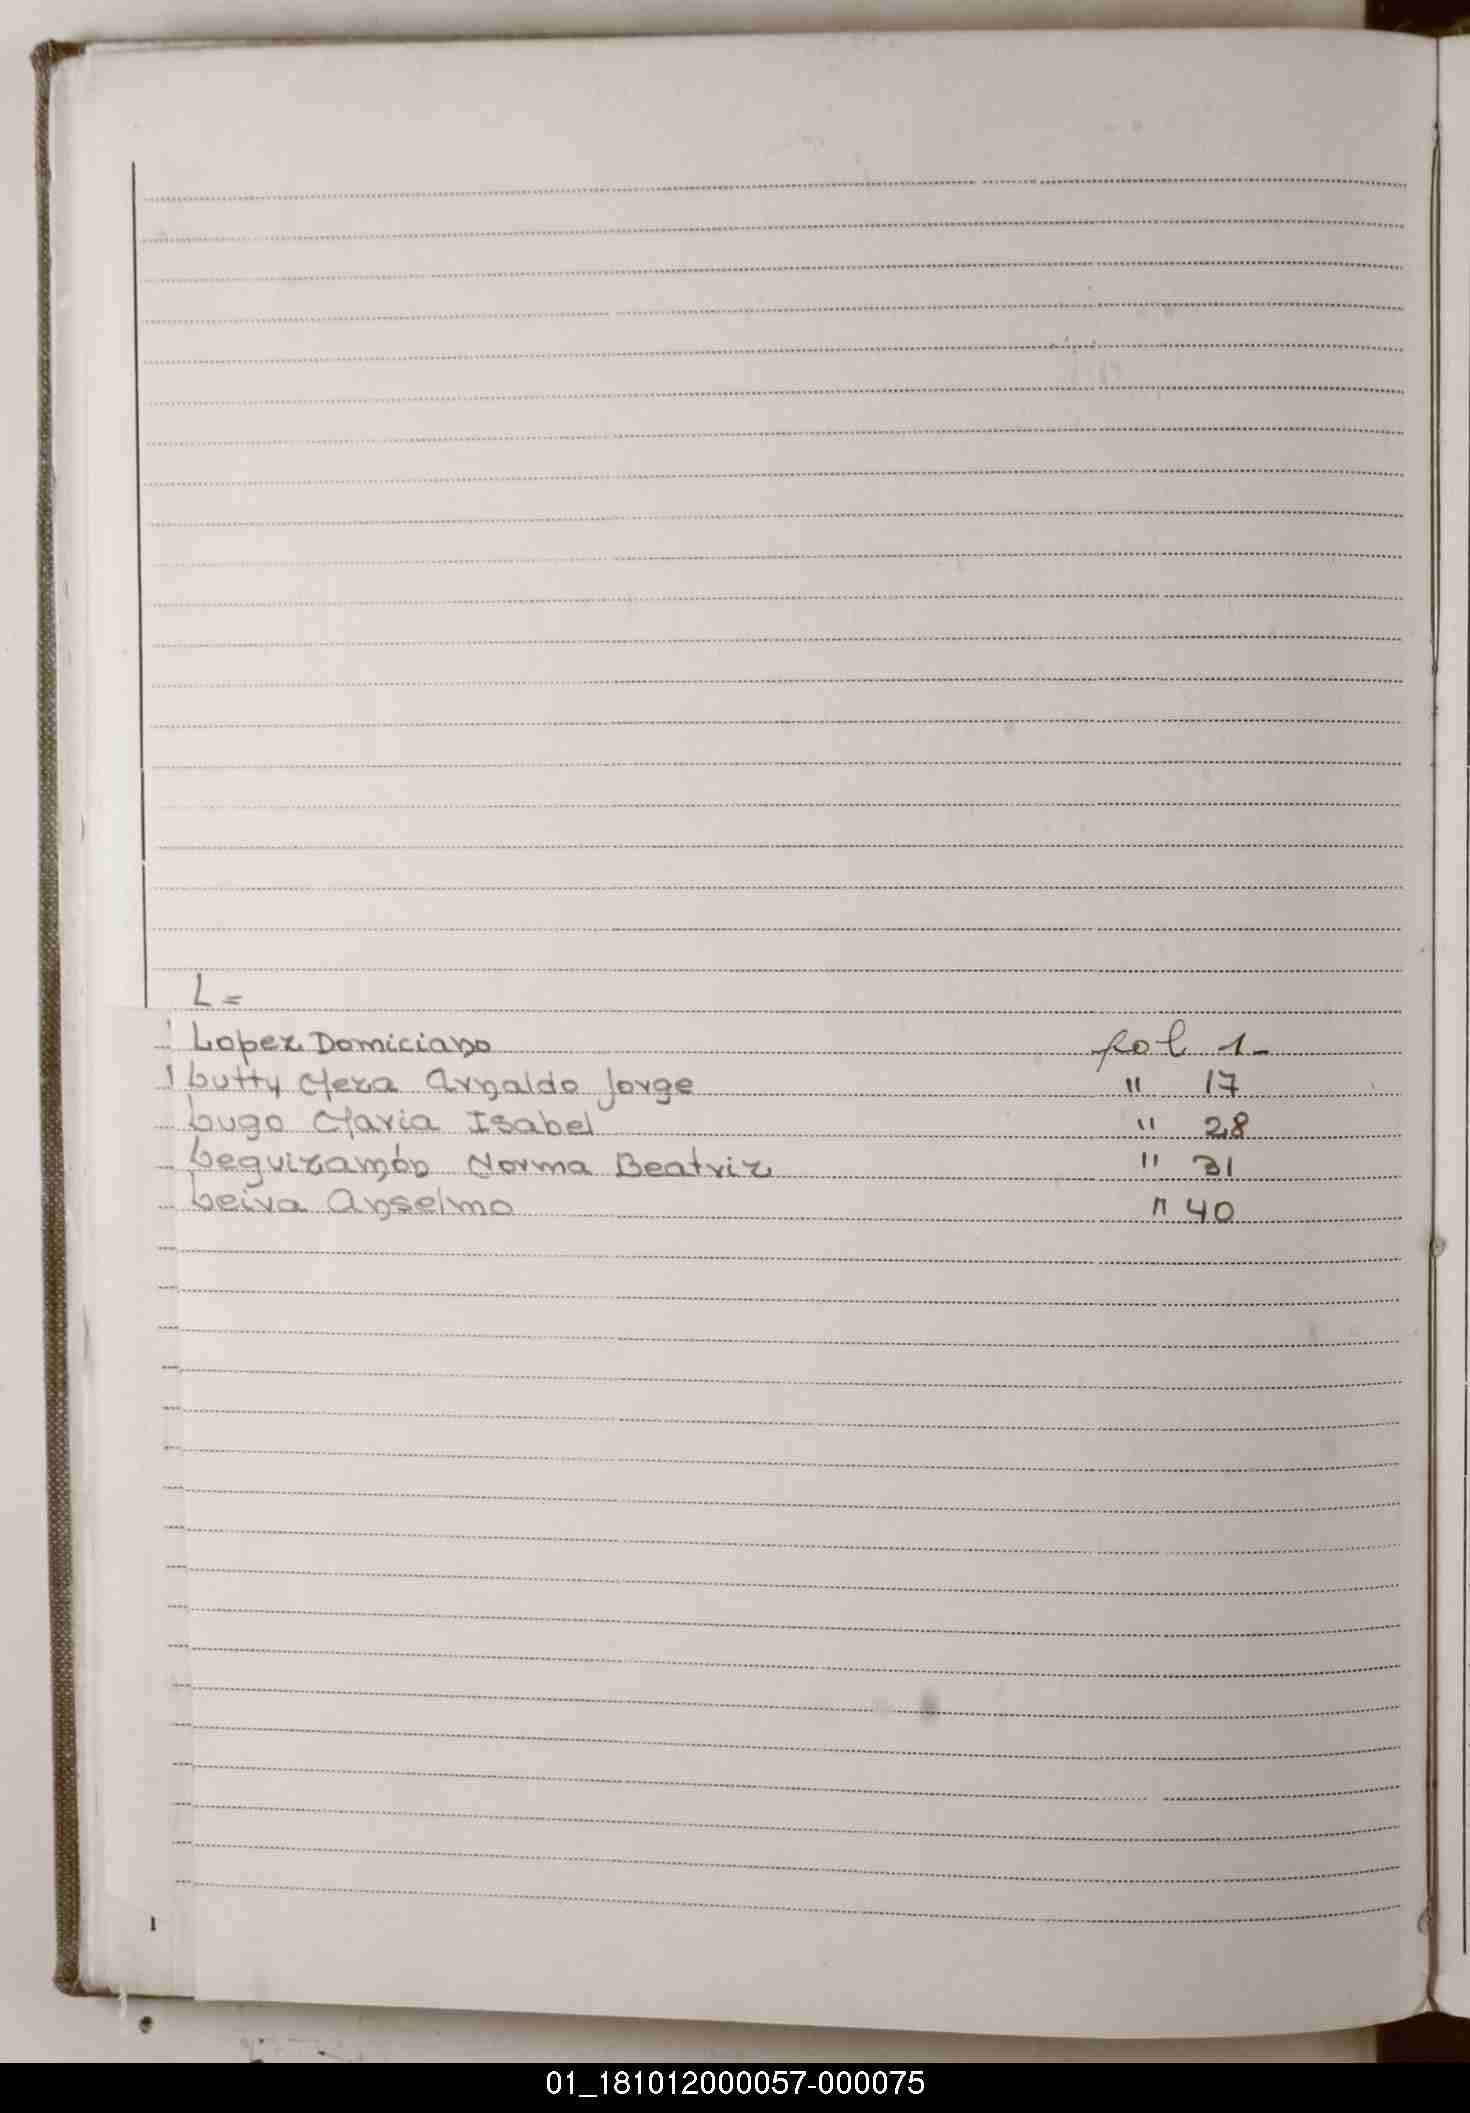 L=
Lopez Domiciano fol 1-
Lutty Meza Arnaldo Jorge " 17
Lugo Maria Isabel " 28
Leguizamón Norma Beatriz " 31
Leiva Anselmo " 40
01_181012000057-000075